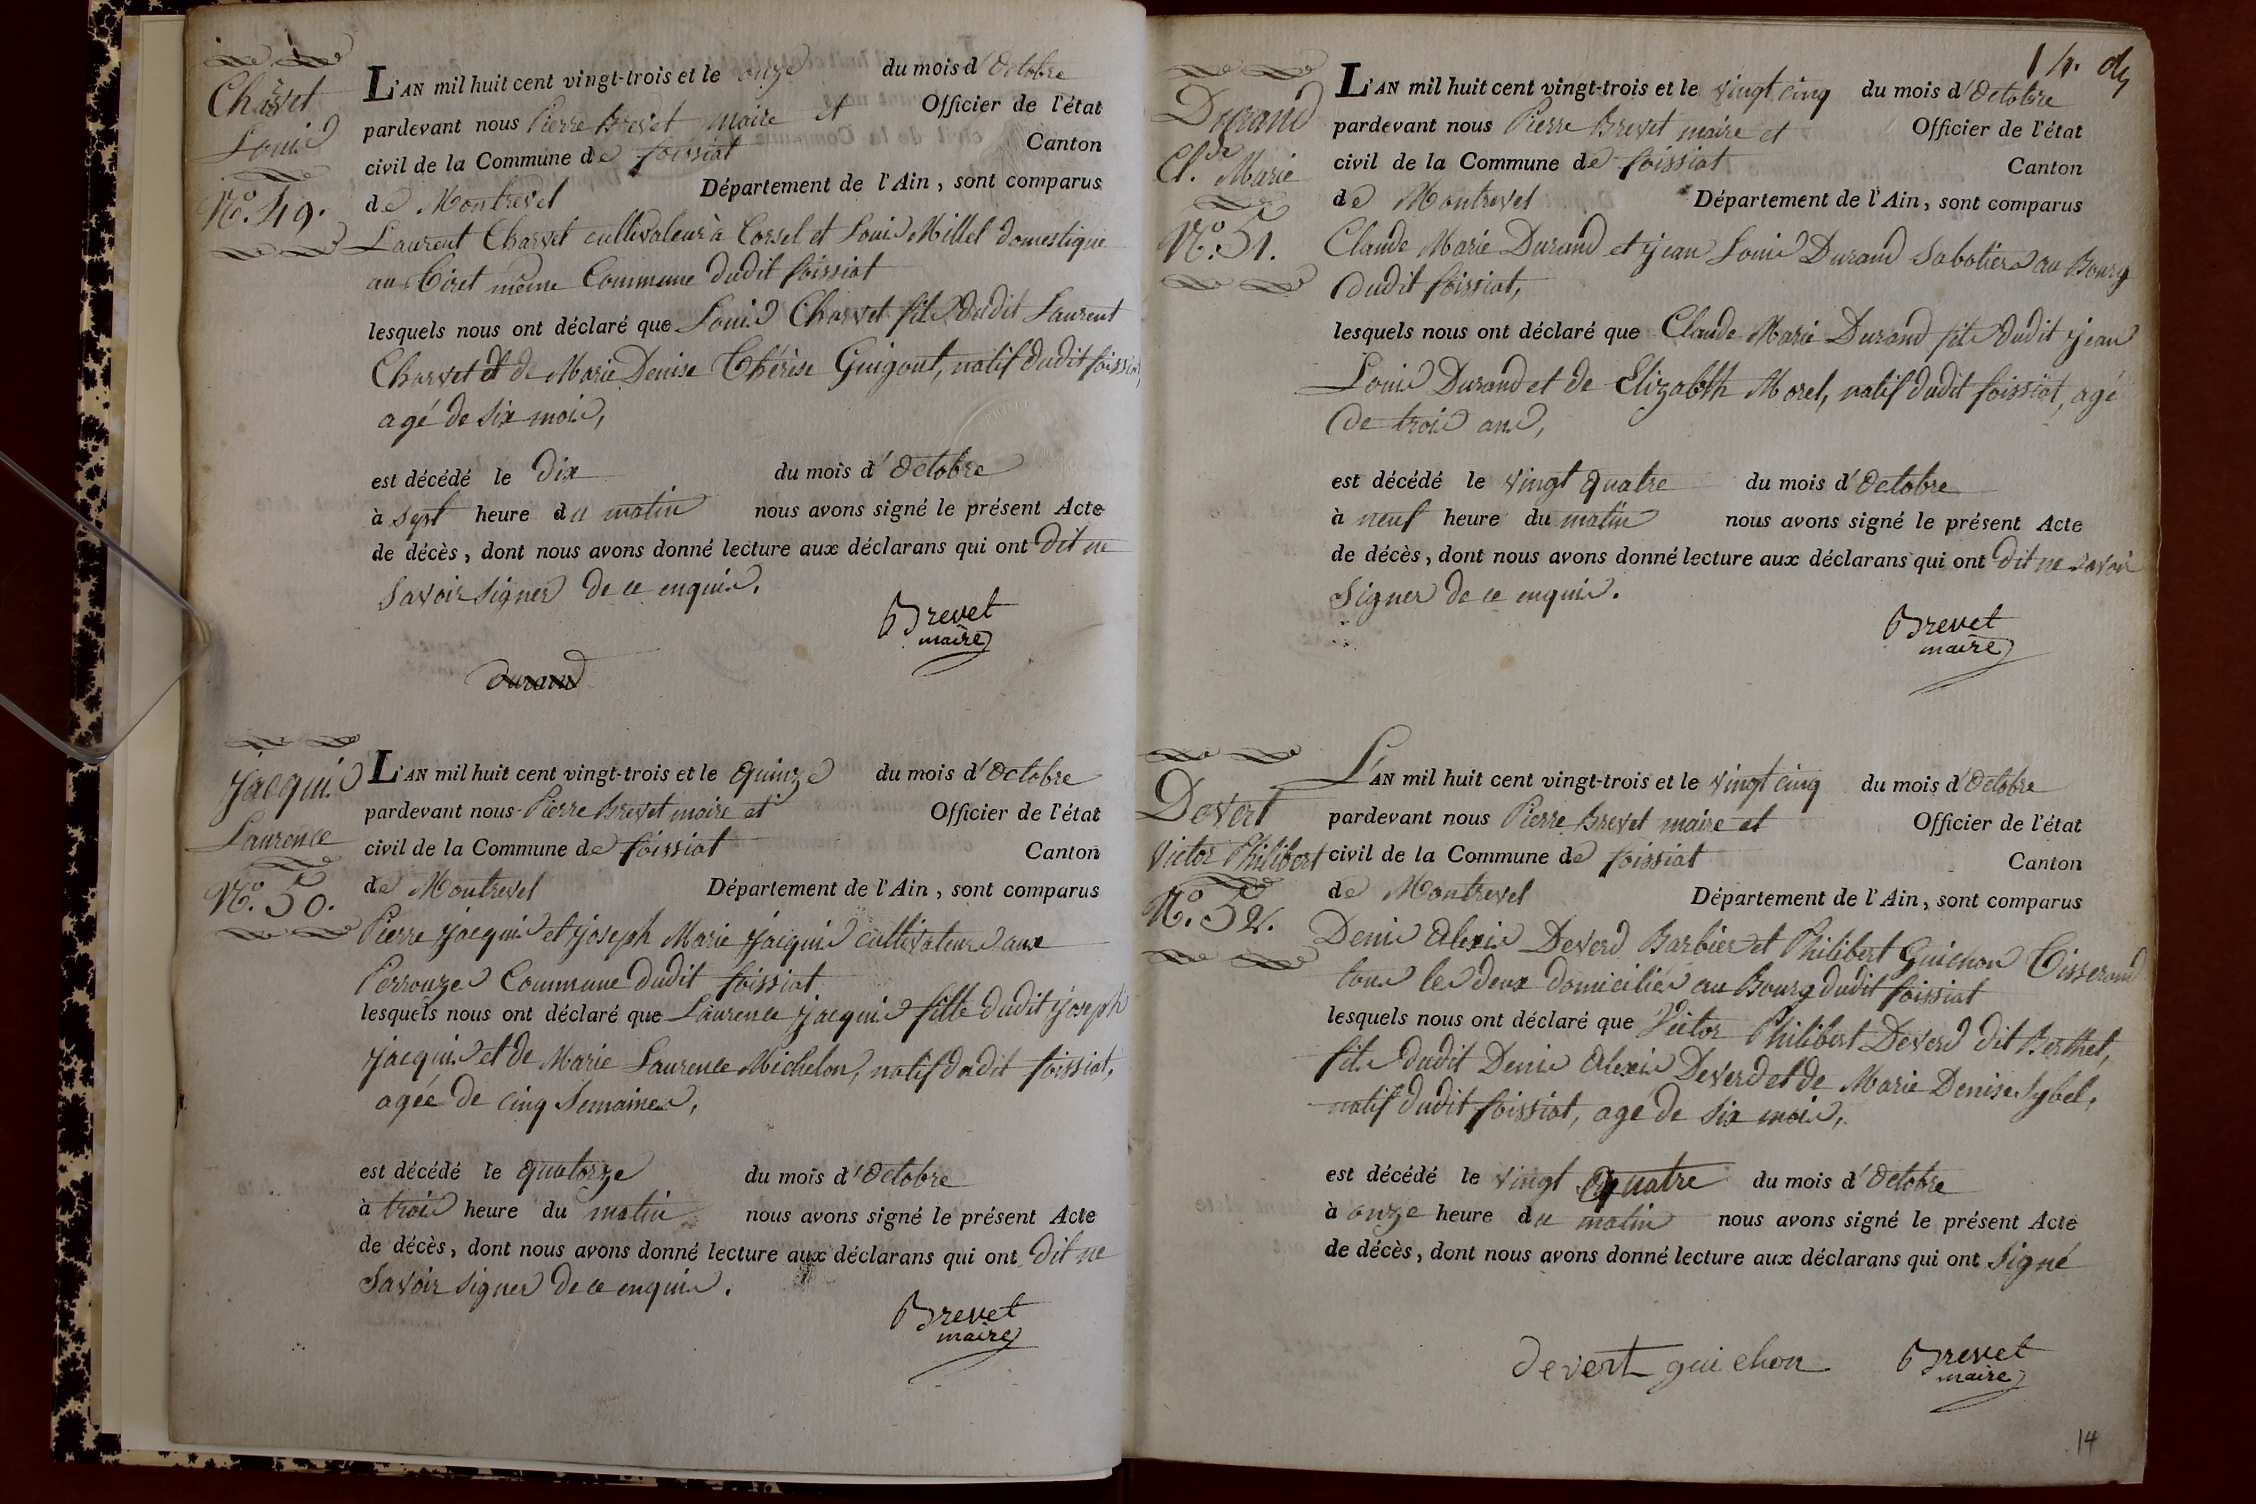 Charvet
Louis
N.º 49.
L'AN mil huit cent vingt-trois et le onze du mois d'Octobre
pardevant nous Pierre Brevet maire et Officier de l'état
civil de la Commune de foissiat Canton
de Montrevel Département de l'Ain, sont comparus
Laurent Charvet cultivateur à Corsel et Louis Millet domestique
au Ciret même Commune dudit foissiat
lesquels nous ont déclaré que Louis Charvet fils dudit Laurent
Charvet et de Marie Denise Thérèse Guigout, natif dudit foissiat,
agé de six mois,
est décédé le dix du mois d'Octobre
à sept heure du matin nous avons signé le présent Acte
de décès, dont nous avons donné lecture aux déclarans qui ont dit ne
savoir signer de ce enquis.
Brevet
maire
durand
Jacquis
Laurence
N.º 50.
L'AN mil huit cent vingt-trois et le quinze du mois d'Octobre
pardevant nous Pierre Brevet maire et Officier de l'état
civil de la Commune de foissiat Canton
de Montrevel Département de l'Ain, sont comparus
Pierre Jacquis et Joseph Marie Jacquis cultivateurs aux
Perrouzes Commune dudit foissiat
lesquels nous ont déclaré que Laurence Jacquis fille dudit Joseph
Jacquis et de Marie Laurence Michelon, natif dudit foissiat,
agée de cinq semaines,
est décédé le quatorze du mois d'Octobre
à trois heure du matin nous avons signé le présent Acte
de décès, dont nous avons donné lecture aux déclarans qui ont dit ne
savoir signer de ce enquis.
Brevet
maire
14.
Durand
Cl.de Marie
N.º 51.
L'AN mil huit cent vingt-trois et le vingt cinq du mois d'Octobre
pardevant nous Pierre Brevet maire et Officier de l'état
civil de la Commune de foissiat Canton
de Montrevel Département de l'Ain, sont comparus
Claude Marie Durand et Jean Louis Durand Sabotiers au Bourg
dudit foissiat,
lesquels nous ont déclaré que Claude Marie Durand fils dudit Jean
Louis Durand et de Elizabth Morel, natif dudit foissiat, agé
de trois ans,
est décédé le vingt quatre du mois d'Octobre
à neuf heure du matin nous avons signé le présent Acte
de décès, dont nous avons donné lecture aux déclarans qui ont dit ne savoir
signer de ce enquis.
Brevet
maire
Devert
Victor Philibert
N.º 52.
L'AN mil huit cent vingt-trois et le vingt cinq du mois d'Octobre
pardevant nous Pierre Brevet maire et Officier de l'état
civil de la Commune de foissiat Canton
de Montrevel Département de l'Ain, sont comparus
Denis Alexis Deverd Barbier et Philibert Guichon Tisserand
tous les deux domiciliés au Bourg dudit foissiat
lesquels nous ont déclaré que Victor Philibert Deverd dit Berthet,
fils dudit Denis Alexis Deverd et de Marie Denise Sybel,
natif dudit foissiat, agé de six mois,
est décédé le vingt quatre du mois d'Octobre
à onze heure du matin nous avons signé le présent Acte
de décès, dont nous avons donné lecture aux déclarans qui ont signé
devert guichon Brevet
maire
14